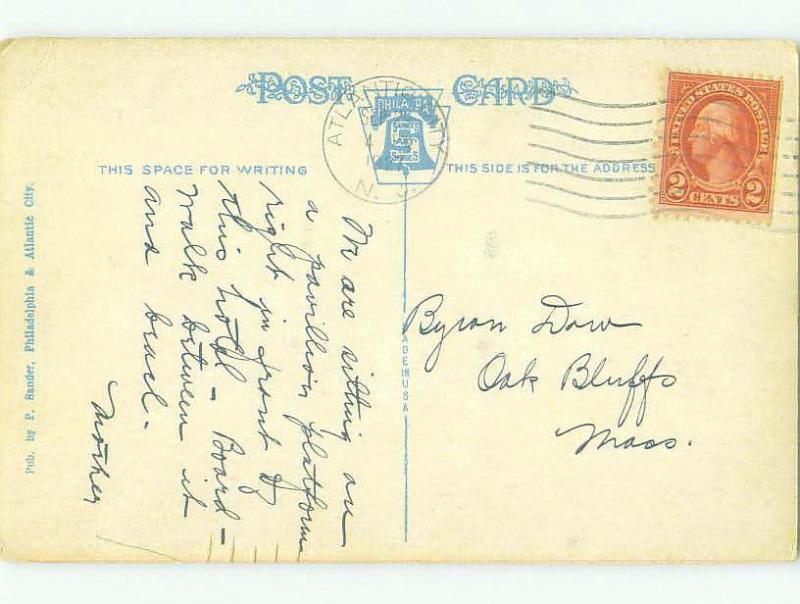 POST CARD
PHILA. PA.
ATLANTIC CITY
N. J.
UNITED STATES POSTAGE
2 CENTS 2
THIS SPACE FOR WRITING
THIS SIDE IS FOR THE ADDRESS
We are sitting on
a pavillion platform
right in front of
this hotel - Board-
walk between it
and beach.
Mother
Byron Dow
Oak Bluffs
Mass.
ADE IN U S A
Pub. by P. Sander, Philadelphia & Atlantic City.